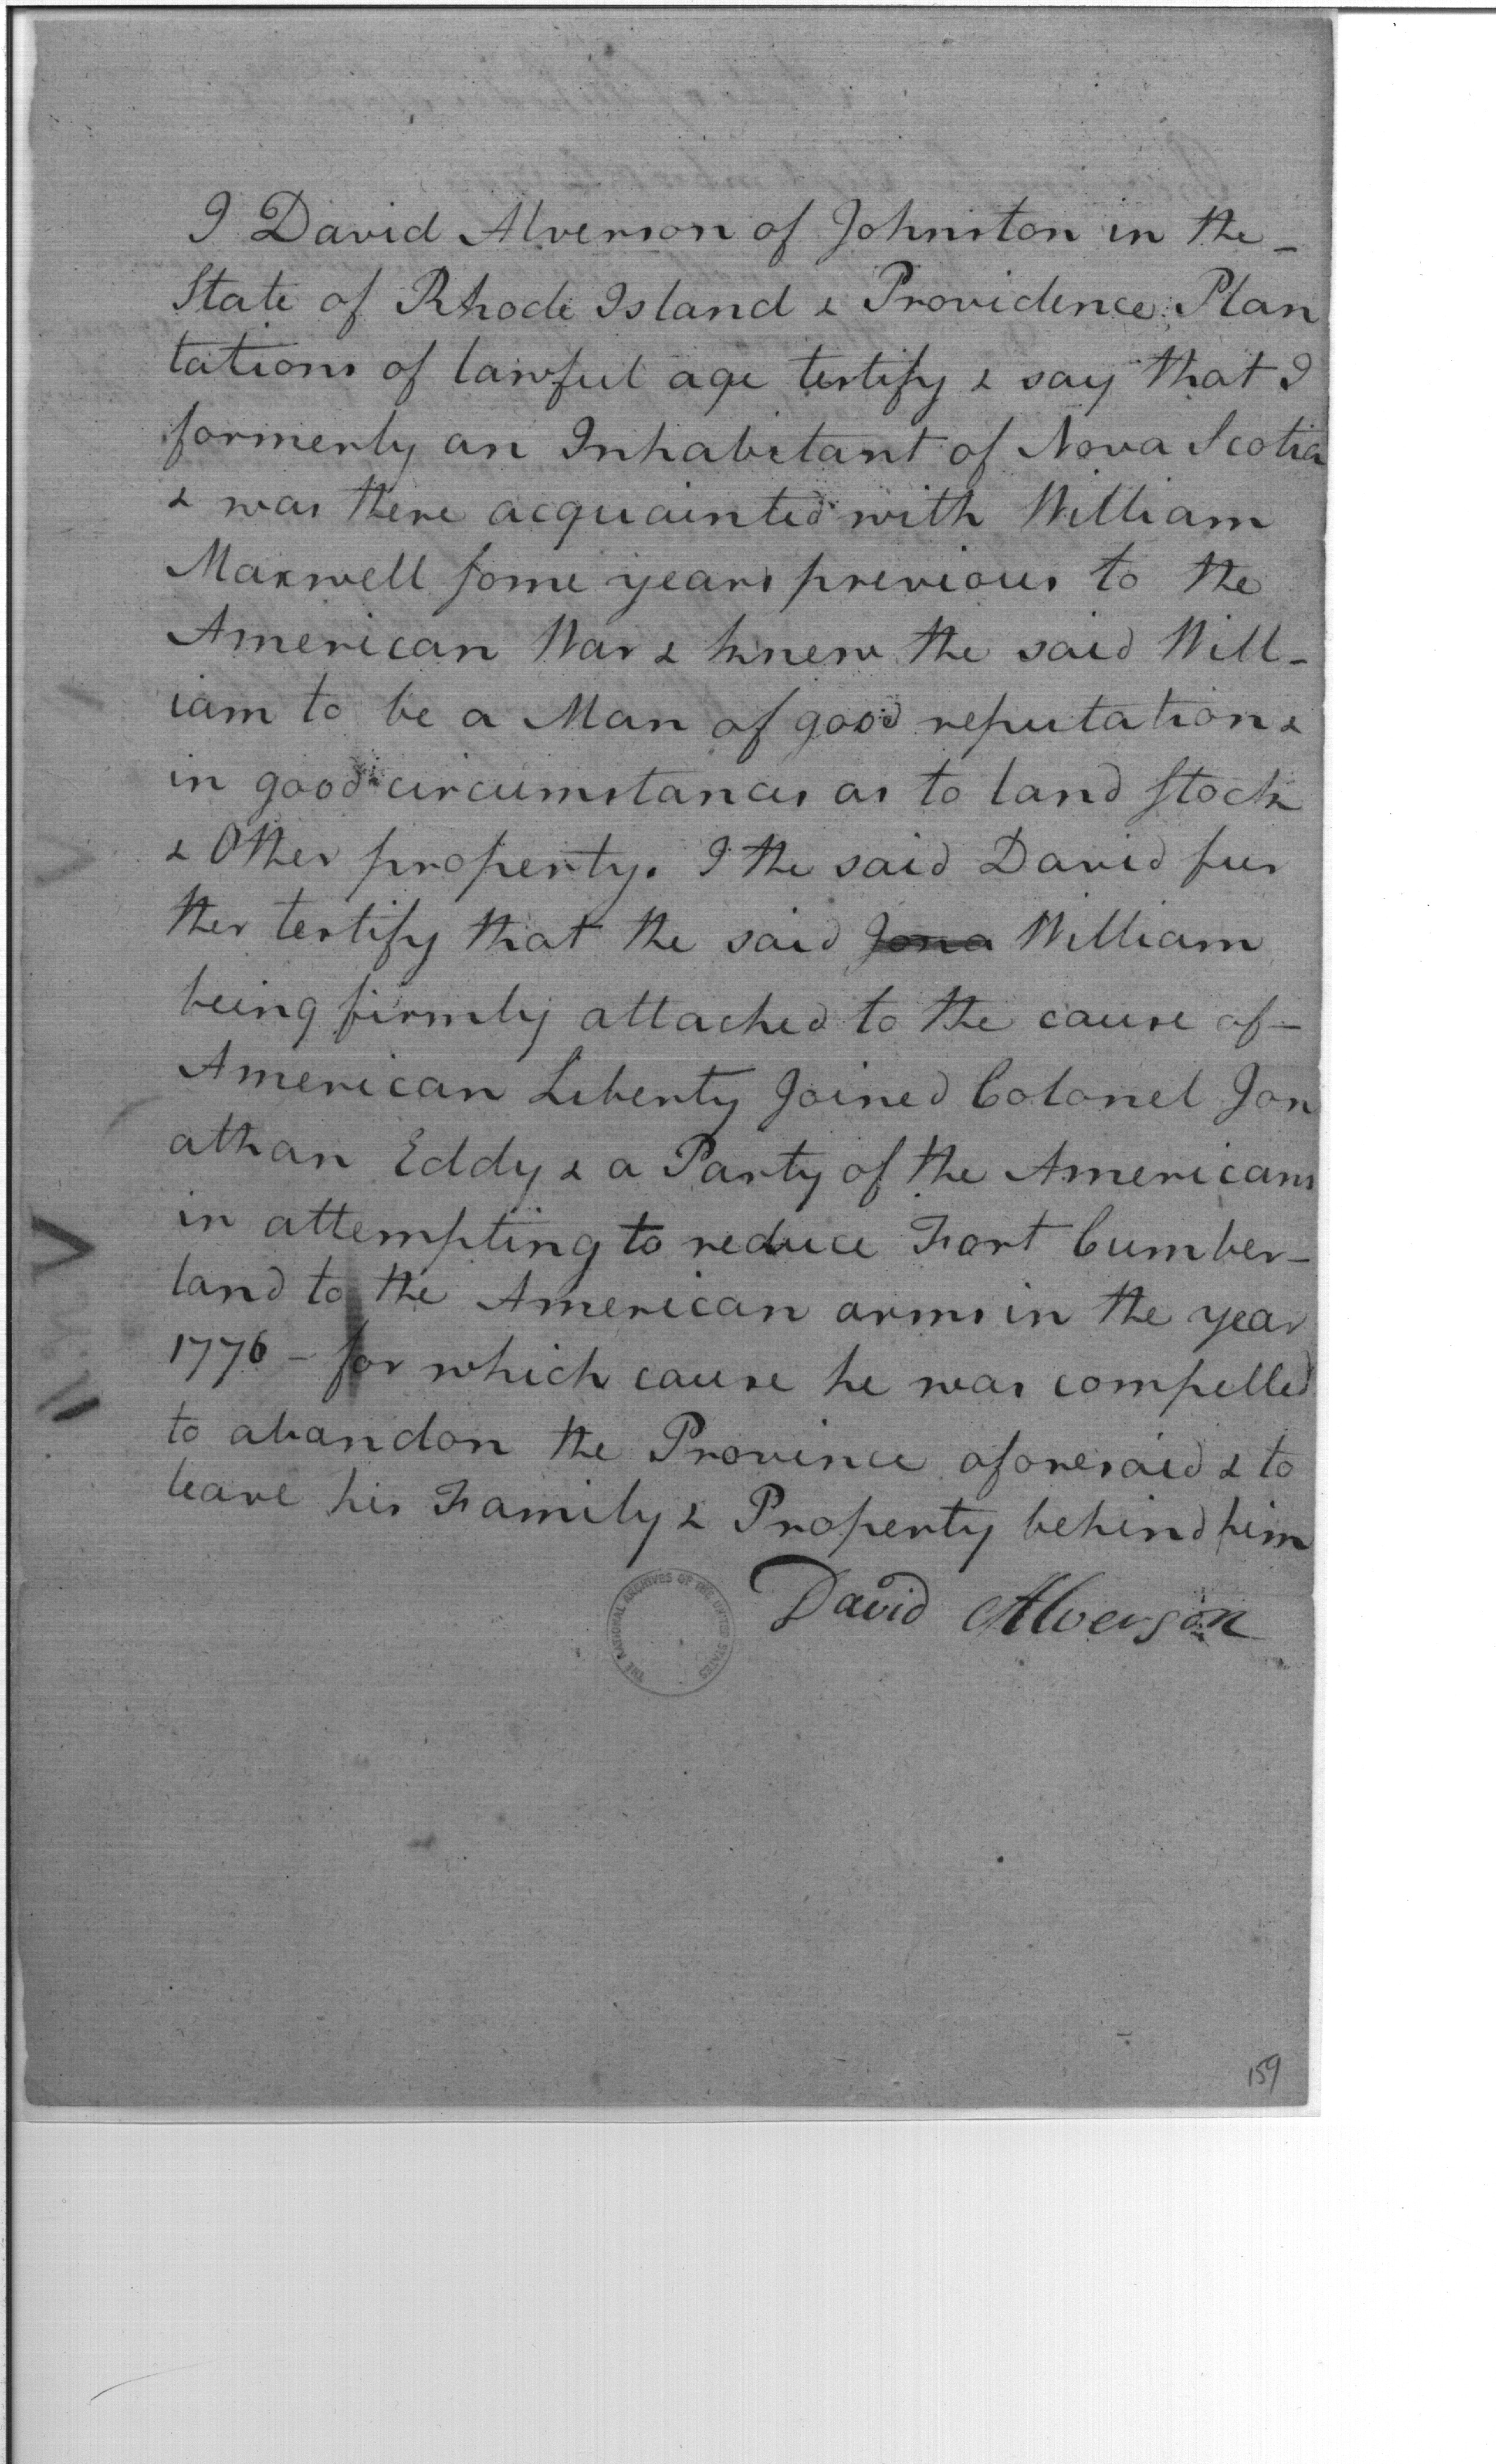 I David Alverson of Johnston in the -
State of Rhode Island & Providence Plan
tations of lawful age testify & say that I
formerly an Inhabitant of Nova Scotia
& was there acquainted with William
Maxwell some years previous to the
American War & knew the said Will-
iam to be a Man of good reputation &
in good circumstances as to land Stock
& Other property. I the said David fur
ther testify that the said Jona William
being firmly attached to the cause of -
American Liberty Joined Colonel Jon
athan Eddy & a Party of the Americans
in attempting to reduce Fort Cumber-
land to the American arms in the year
1776 - for which cause he was compelled
to abandon the Province aforesaid & to
leave his Family & Property behind him
David Alverson
THE NATIONAL ARCHIVES OF THE UNITED STATES
159